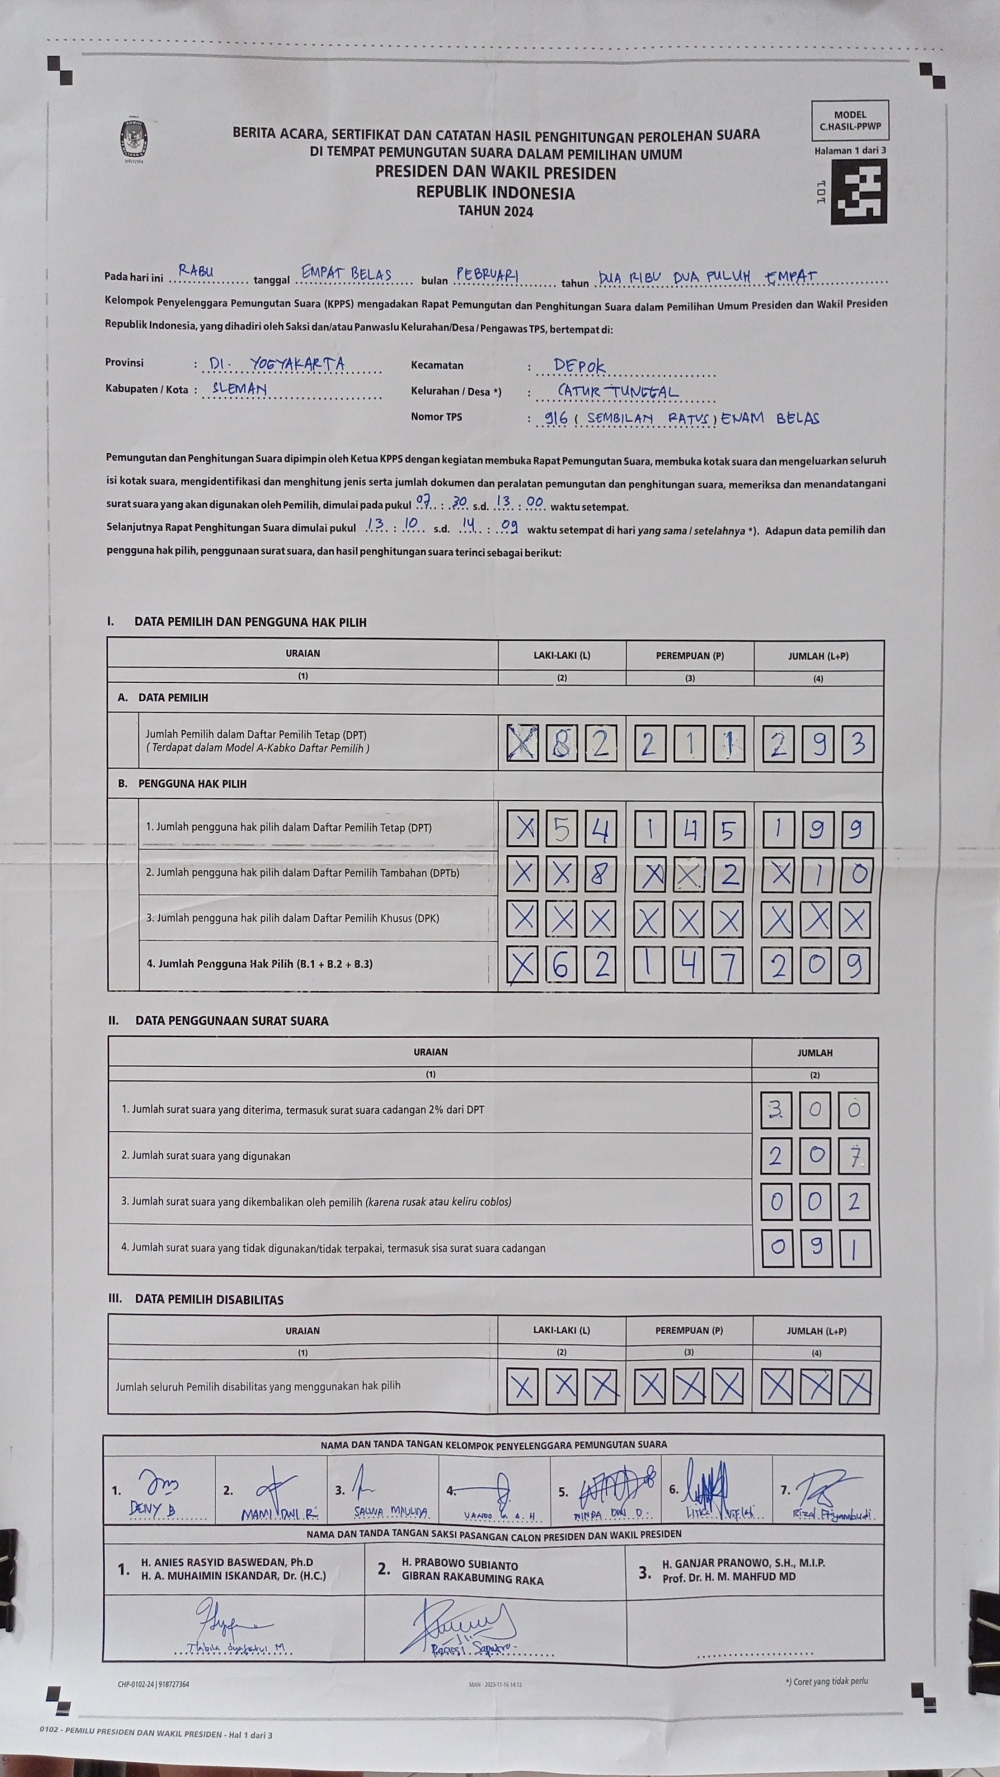 MODEL
C.HASIL-PPWP
Halaman 1 dari 3
101
BERITA ACARA, SERTIFIKAT DAN CATATAN HASIL PENGHITUNGAN PEROLEHAN SUARA
DI TEMPAT PEMUNGUTAN SUARA DALAM PEMILIHAN UMUM
PRESIDEN DAN WAKIL PRESIDEN
REPUBLIK INDONESIA
TAHUN 2024
Pada hari ini RABU tanggal EMPAT BELAS bulan PEBRUARI tahun DUA RIBU DUA PULUH EMPAT
Kelompok Penyelenggara Pemungutan Suara (KPPS) mengadakan Rapat Pemungutan dan Penghitungan Suara dalam Pemilihan Umum Presiden dan Wakil Presiden
Republik Indonesia, yang dihadiri oleh Saksi dan/atau Panwaslu Kelurahan/Desa / Pengawas TPS, bertempat di:
Provinsi : DI. YOGYAKARTA Kecamatan : DEPOK
Kabupaten / Kota : SLEMAN Kelurahan / Desa *) : CATUR TUNGGAL
Nomor TPS : 916 ( SEMBILAN RATUS ) ENAM BELAS
Pemungutan dan Penghitungan Suara dipimpin oleh Ketua KPPS dengan kegiatan membuka Rapat Pemungutan Suara, membuka kotak suara dan mengeluarkan seluruh
isi kotak suara, mengidentifikasi dan menghitung jenis serta jumlah dokumen dan peralatan pemungutan dan penghitungan suara, memeriksa dan menandatangani
surat suara yang akan digunakan oleh Pemilih, dimulai pada pukul 07 : 30 s.d. 13 : 00 waktu setempat.
Selanjutnya Rapat Penghitungan Suara dimulai pukul 13 : 10 s.d. 14 : 09 waktu setempat di hari yang sama / setelahnya *). Adapun data pemilih dan
pengguna hak pilih, penggunaan surat suara, dan hasil penghitungan suara terinci sebagai berikut:
I. DATA PEMILIH DAN PENGGUNA HAK PILIH
URAIAN LAKI-LAKI (L) PEREMPUAN (P) JUMLAH (L+P)
(1) (2) (3) (4)
A. DATA PEMILIH
Jumlah Pemilih dalam Daftar Pemilih Tetap (DPT) X 8 2 2 1 1 2 9 3
( Terdapat dalam Model A-Kabko Daftar Pemilih )
B. PENGGUNA HAK PILIH
1. Jumlah pengguna hak pilih dalam Daftar Pemilih Tetap (DPT) X 5 4 1 4 5 1 9 9
2. Jumlah pengguna hak pilih dalam Daftar Pemilih Tambahan (DPTb) X X 8 X X 2 X 1 0
3. Jumlah pengguna hak pilih dalam Daftar Pemilih Khusus (DPK) X X X X X X X X X
4. Jumlah Pengguna Hak Pilih (B.1 + B.2 + B.3) X 6 2 1 4 7 2 0 9
II. DATA PENGGUNAAN SURAT SUARA
URAIAN JUMLAH
(1) (2)
1. Jumlah surat suara yang diterima, termasuk surat suara cadangan 2% dari DPT 3 0 0
2. Jumlah surat suara yang digunakan 2 0 7
3. Jumlah surat suara yang dikembalikan oleh pemilih (karena rusak atau keliru coblos) 0 0 2
4. Jumlah surat suara yang tidak digunakan/tidak terpakai, termasuk sisa surat suara cadangan 0 9 1
III. DATA PEMILIH DISABILITAS
URAIAN LAKI-LAKI (L) PEREMPUAN (P) JUMLAH (L+P)
(1) (2) (3) (4)
Jumlah seluruh Pemilih disabilitas yang menggunakan hak pilih X X X X X X X X X
NAMA DAN TANDA TANGAN KELOMPOK PENYELENGGARA PEMUNGUTAN SUARA
1. 2. 3. 4. 5. 6. 7.
DENY B MAMI DWI. R SALWA MAULIDA
NAMA DAN TANDA TANGAN SAKSI PASANGAN CALON PRESIDEN DAN WAKIL PRESIDEN
1. H. ANIES RASYID BASWEDAN, Ph.D
H. A. MUHAIMIN ISKANDAR, Dr. (H.C.)
2. H. PRABOWO SUBIANTO
GIBRAN RAKABUMING RAKA
3. H. GANJAR PRANOWO, S.H., M.I.P.
Prof. Dr. H. M. MAHFUD MD
CHP-0102-24 | 918727364
MAN - 2023-11-16 14:12
*) Coret yang tidak perlu
0102 - PEMILU PRESIDEN DAN WAKIL PRESIDEN - Hal 1 dari 3